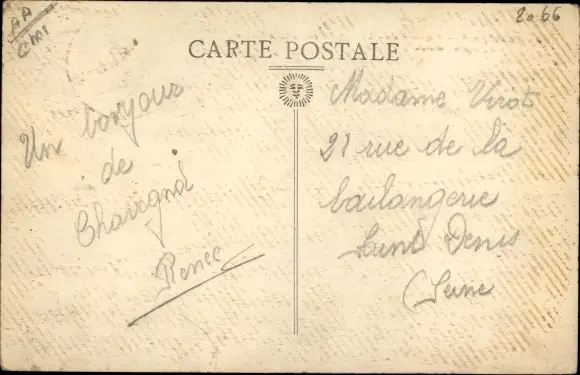 AA
2066
CARTE POSTALE
Un bonjour
de
Renée
Madame Virot
21 rue de la
boulangerie
Saint Denis
(Seine